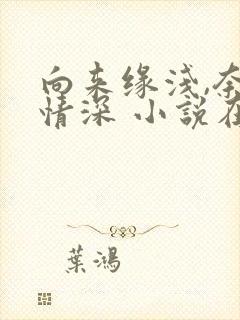 向来缘浅,奈
情深 小說在
葉鴻